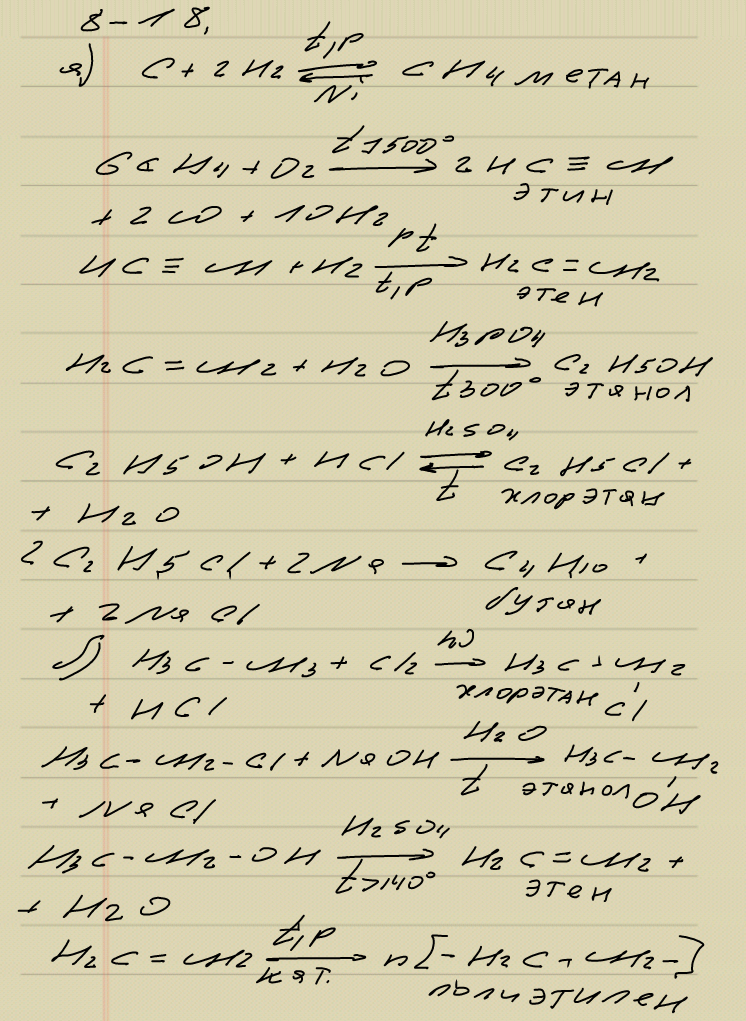 8-18.
а) C + 2H2 ⇄ (t, p / Ni) CH4 метан
6CH4 + O2 → (t 1500°) 2HC≡CH этин
+ 2CO + 10H2
HC≡CH + H2 → (pt / t, p) H2C=CH2 этен
H2C=CH2 + H2O → (H3PO4 / t 300°) C2H5OH этанол
C2H5OH + HCl ⇄ (H2SO4 / t) C2H5Cl + хлорэтан
+ H2O
2C2H5Cl + 2Na → C4H10 + бутан
+ 2NaCl
б) H3C-CH3 + Cl2 → (hν) H3C-CH2 Cl хлорэтан
+ HCl
H3C-CH2-Cl + NaOH → (H2O / t) H3C-CH2 OH этанол
+ NaCl
H3C-CH2-OH → (H2SO4 / t>140°) H2C=CH2 + этен
+ H2O
H2C=CH2 → (t, p / кат.) n[-H2C-CH2-] полиэтилен